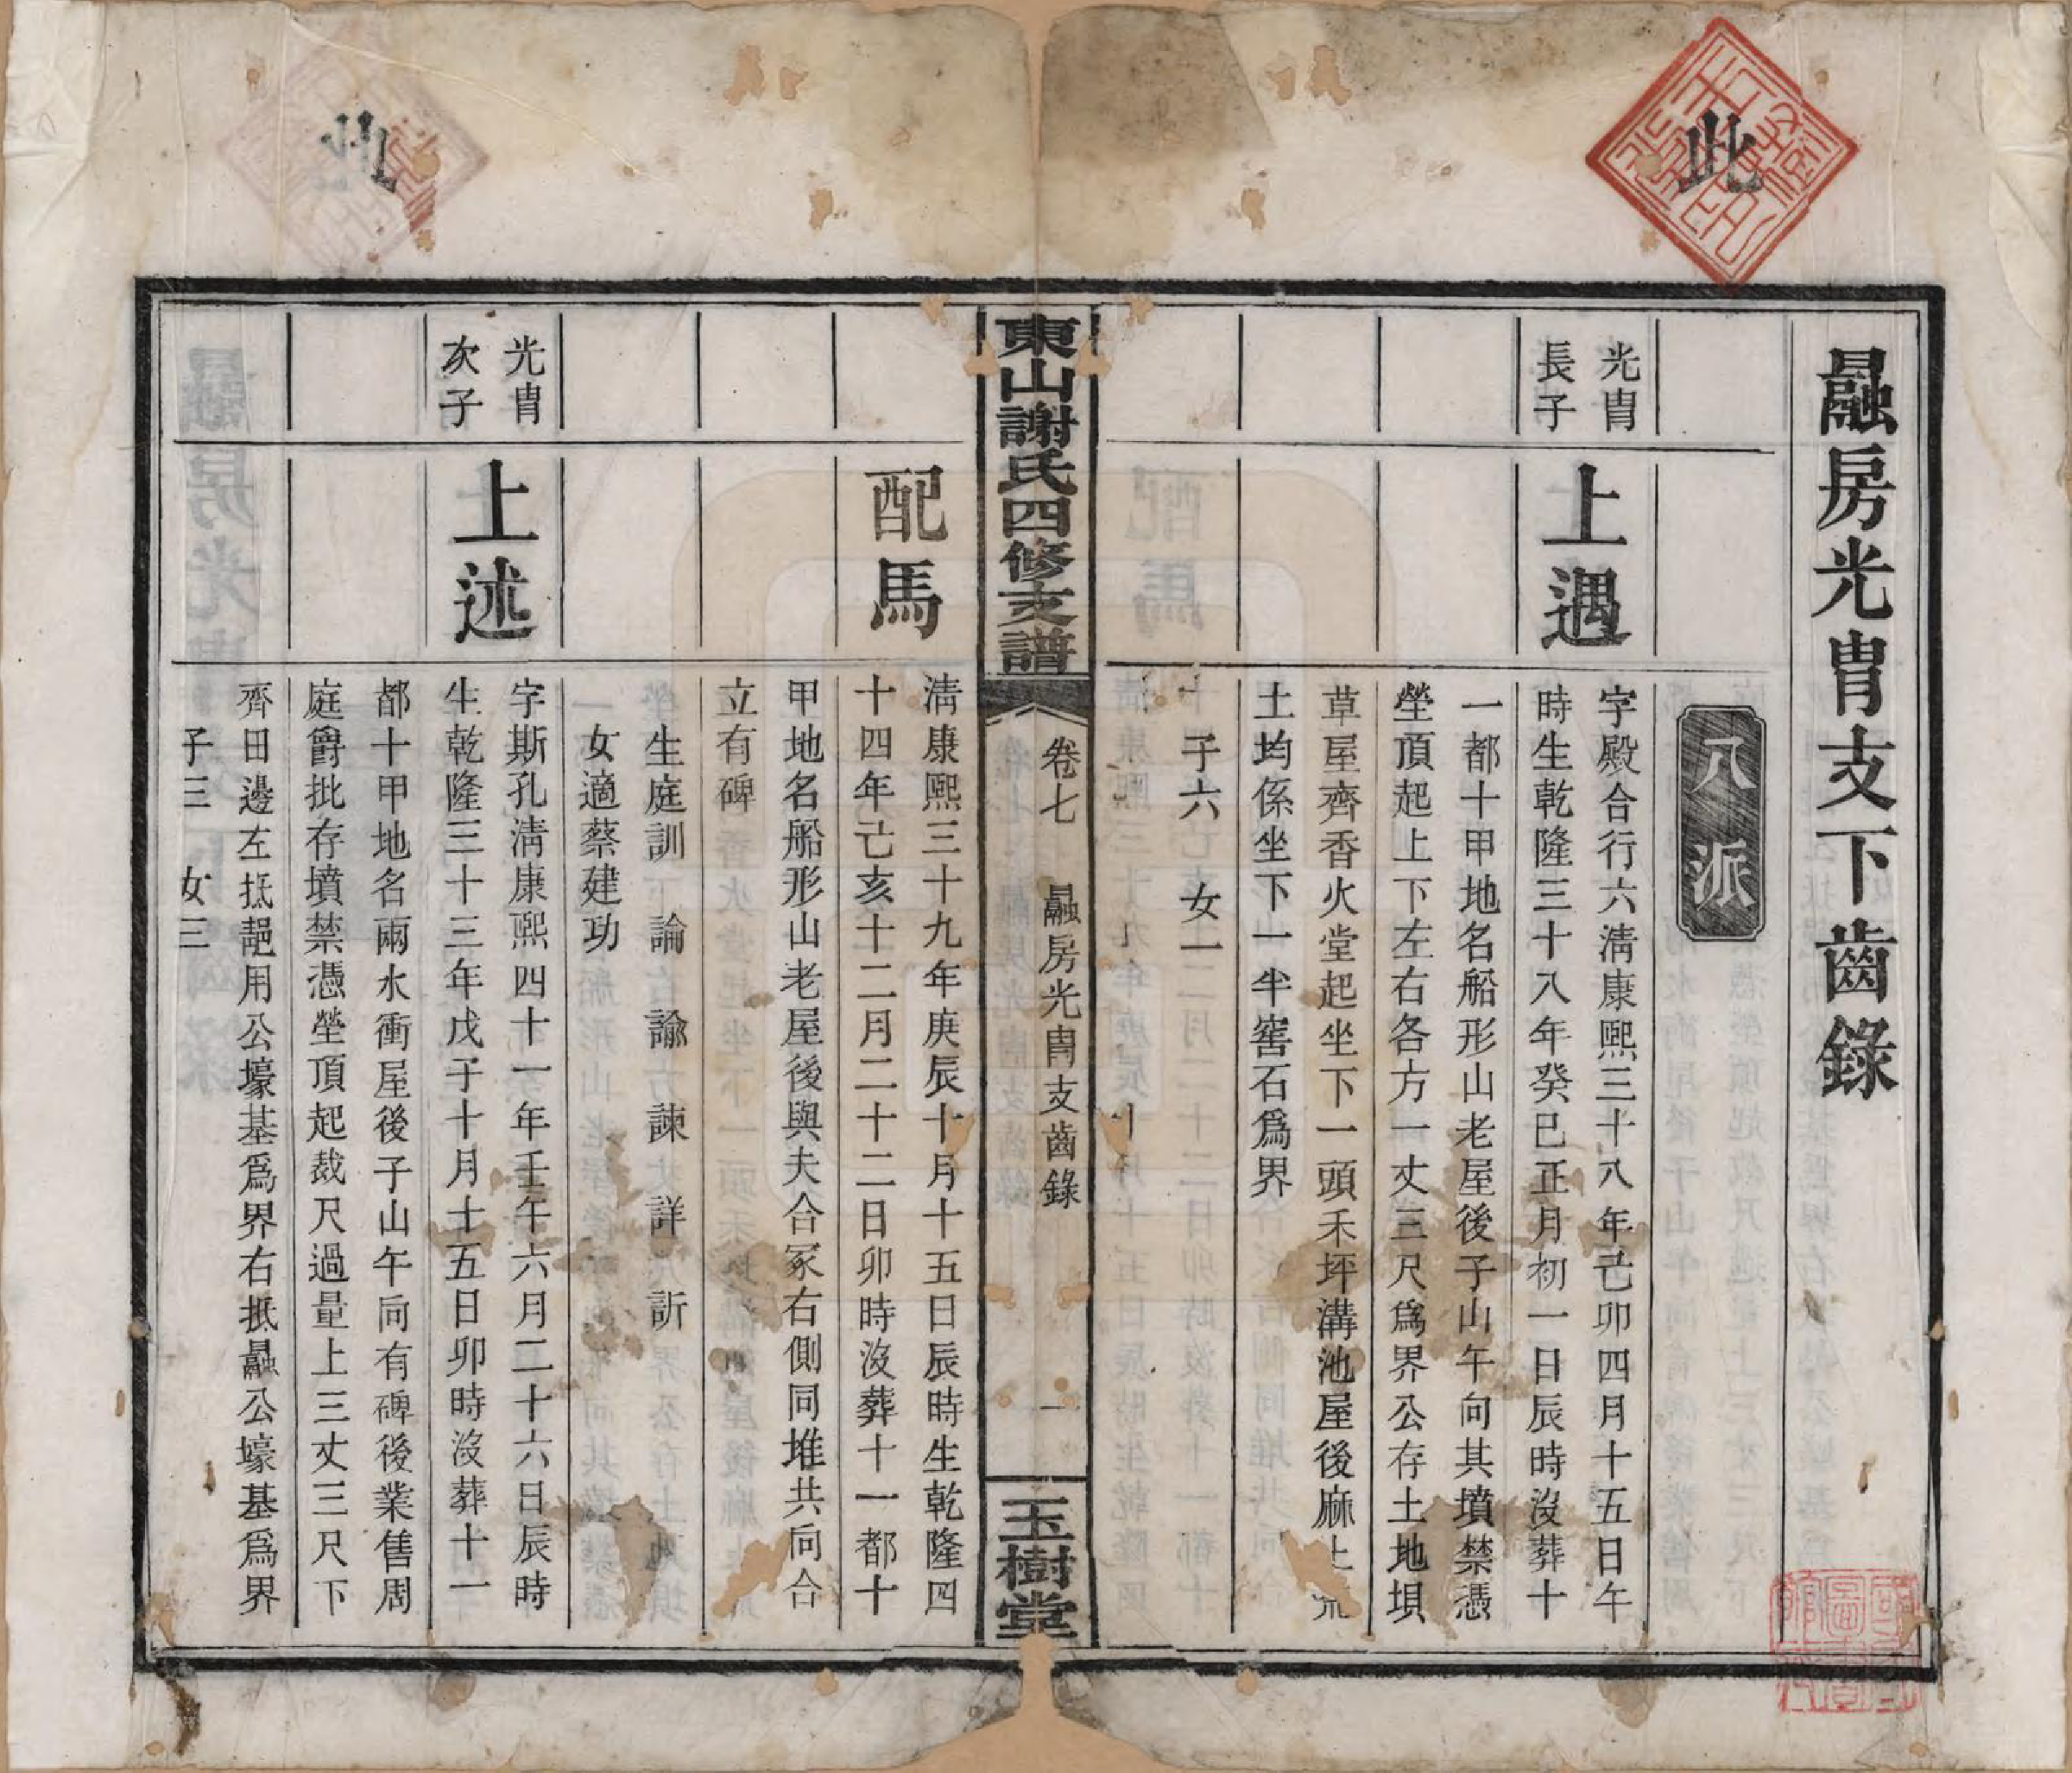 此
勗房光胄支下齒錄
八派
光胄
長子
上遇
字殿合行六淸康熙三十八年己卯四月十五日午
時生乾隆三十八年癸巳正月初一日辰時沒葬十
一都十甲地名船形山老屋後子山午向其墳禁憑
塋頂起上下左右各方一丈三尺爲界公存土地垻
草屋齊香火堂起坐下一頭禾坪溝池屋後麻土
土均係坐下一半窖石爲界
子六 女一
東山謝氏四修支譜
卷七 勗房光胄支齒錄 一
玉樹堂
配馬
淸康熙三十九年庚辰十月十五日辰時生乾隆四
十四年己亥十二月二十二日卯時沒葬十一都十
甲地名船形山老屋後與夫合冢右側同堆共向合
立有碑
生庭訓 論 諭 諫 詳 訢
女適蔡建功
光胄
次子
上述
字斯孔淸康熙四十一年壬午六月二十六日辰時
生乾隆三十三年戊子十月十五日卯時沒葬十一
都十甲地名兩水衝屋後子山午向有碑後業售周
庭爵批存墳禁憑塋頂起裁尺過量上三丈三尺下
齊田邊左抵勗用公壕基爲界右抵勗公壕基爲界
子三 女三